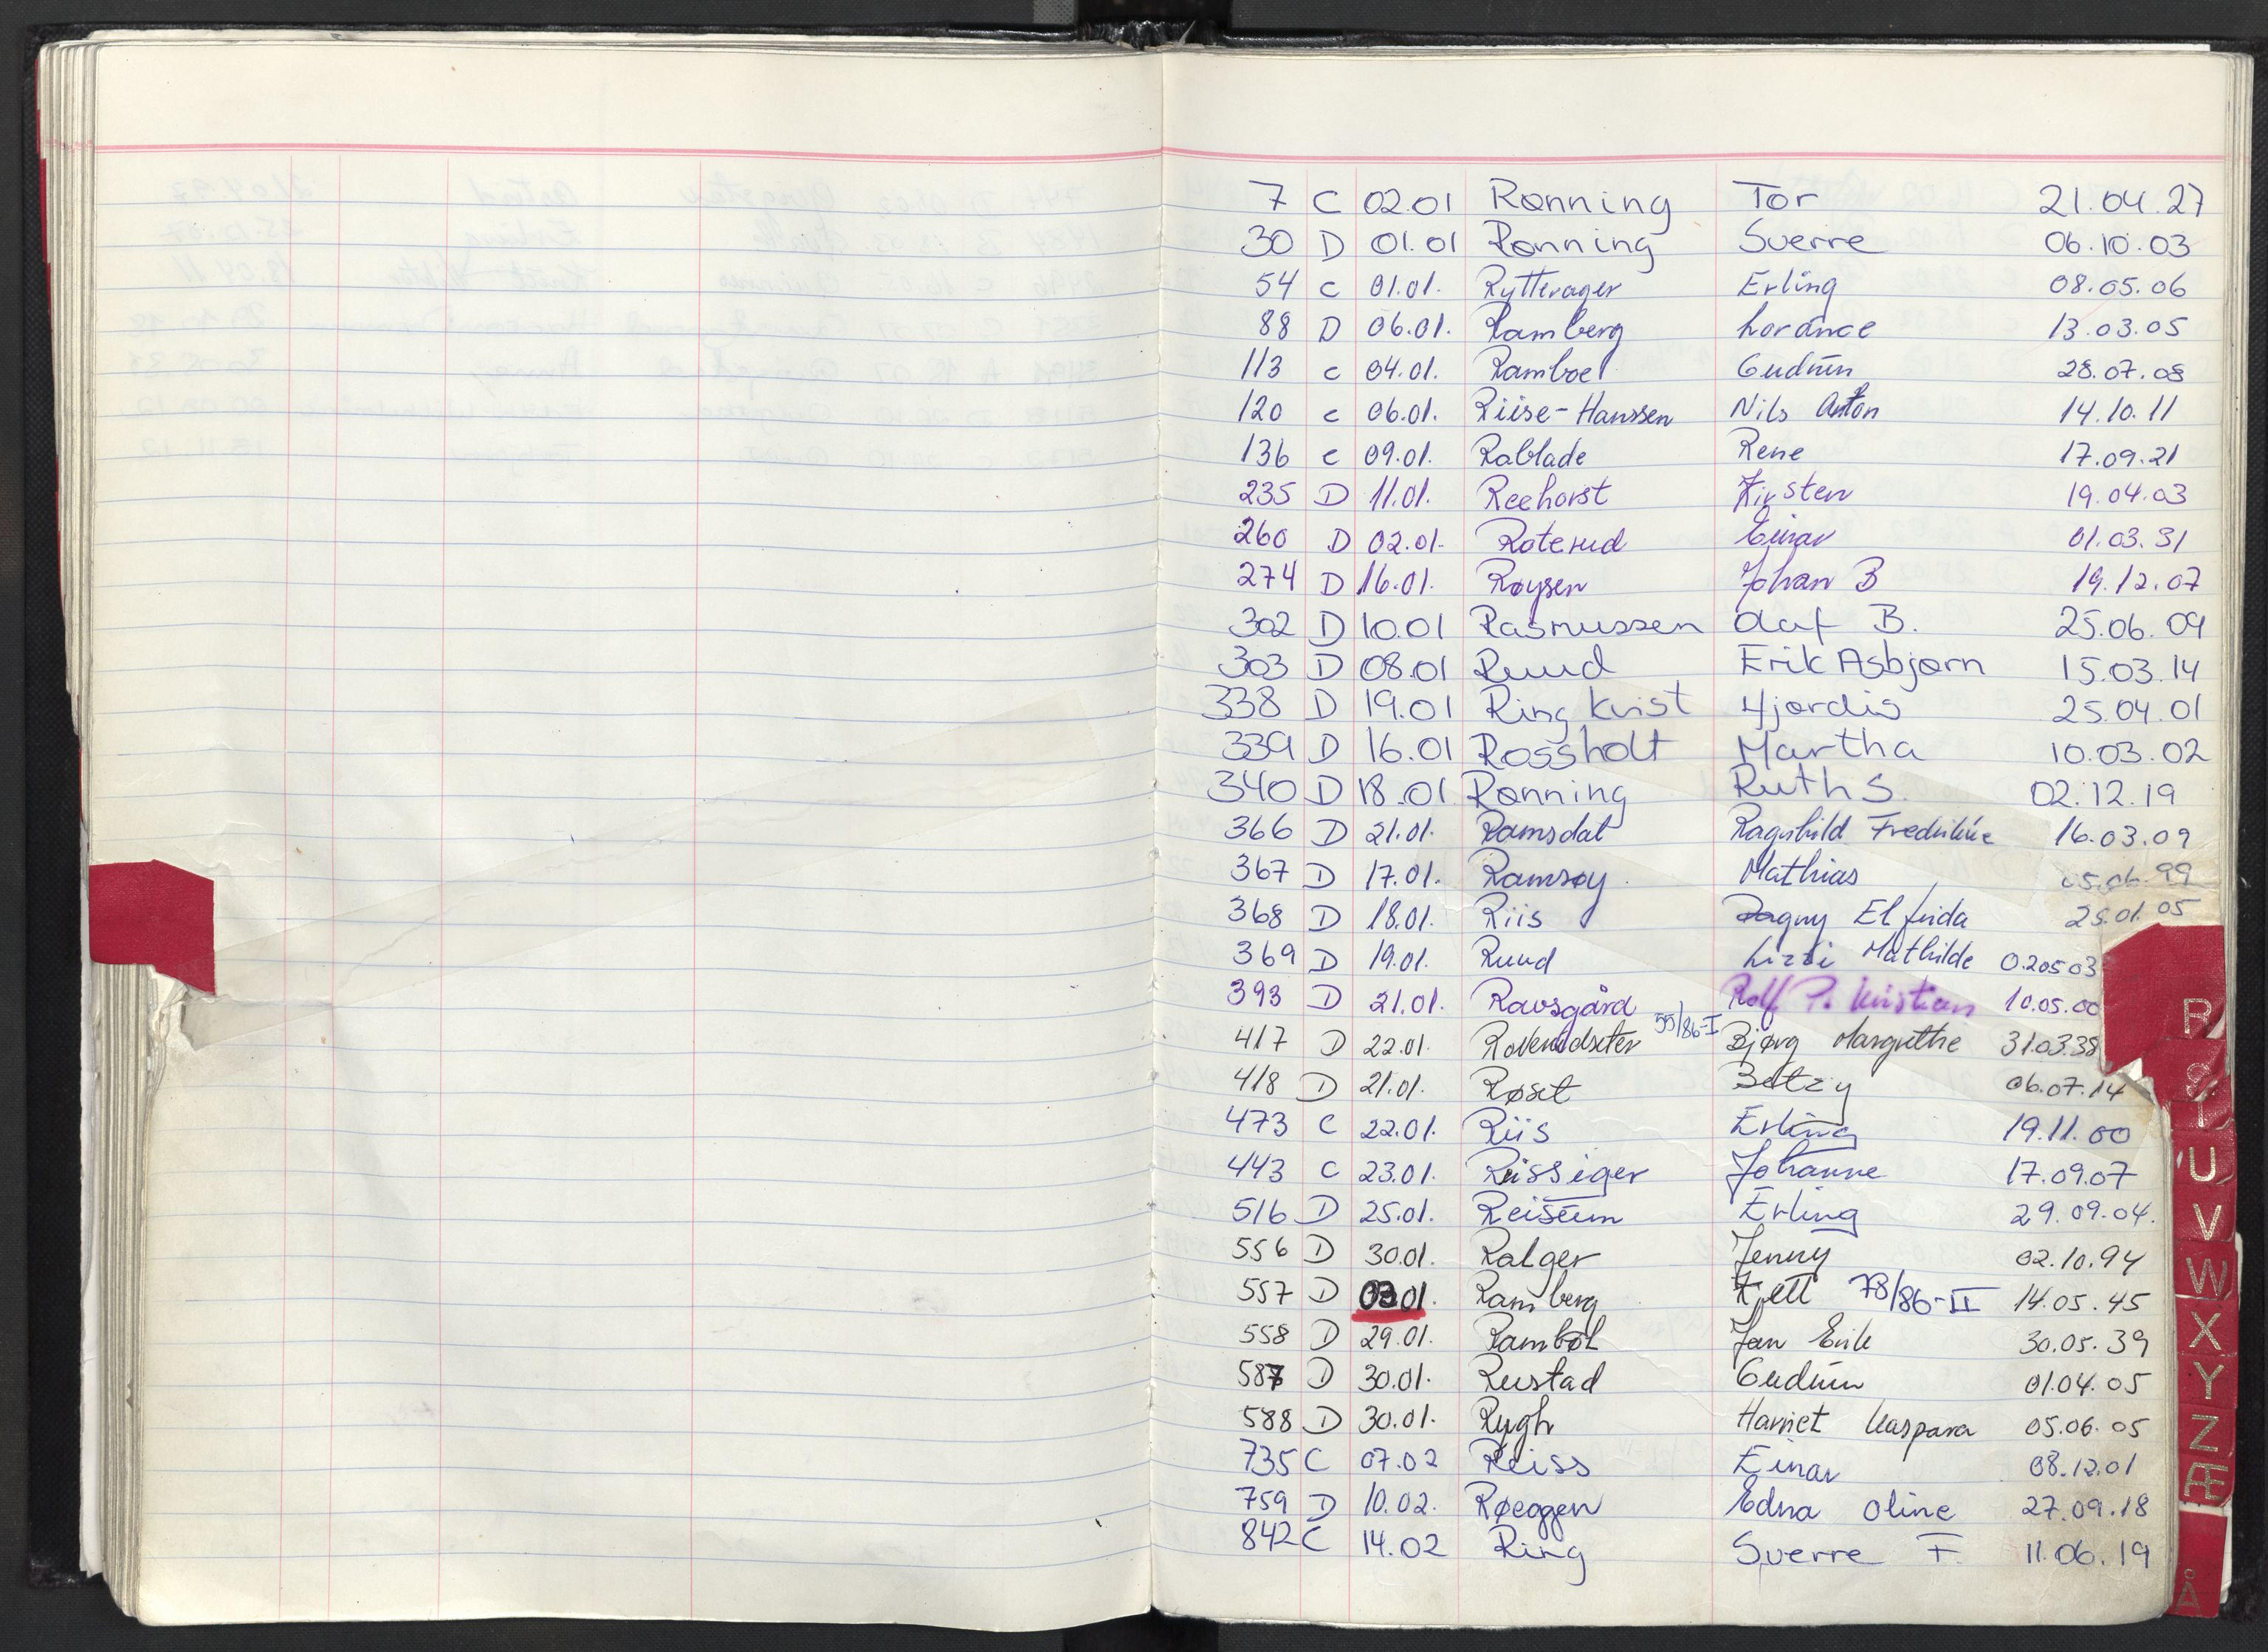 7 C 02.01 Rønning Tor 21.04.27
30 D 01.01 Rønning Sverre 06.10.03
54 C 01.01. Rytterager Erling 08.05.06
88 D 06.01. Ramberg Lorance 13.03.05
113 C 04.01. Ramboel Gudrun 28.07.08
120 C 06.01. Riise-Hanssen Nils Anton 14.10.11
136 C 09.01. Rablade Rene 17.09.21
235 D 11.01. Reehorst Kirsten 19.04.03
260 D 02.01. Roterud Einar 01.03.31
274 D 16.01. Røysen Johan B 19.12.07
302 D 10.01 Rasmussen Olaf B. 25.06.09
303 D 08.01 Ruud Erik Asbjørn 15.03.14
338 D 19.01 Ring Kvist Hjørdis 25.04.01
339 D 16.01 Rossholt Martha 10.03.02
340 D 18.01 Rønning Ruth S. 02.12.19
366 D 21.01. Ramsdal Ragnhild Fredrikke 16.03.09
367 D 17.01. Ramsøy Mathias 05.06.99
368 D 18.01. Riis Dagny Elfrida 25.01.05
369 D 19.01. Ruud Lizzi Mathilde 0.205 03
393 D 21.01. Ravsgård Rolf P. Kristian 10.05.00
417 D 22.01. 55/86-I Bjørg Margrethe 31.03.38
418 D 21.01. Røset Betzy 06.07.14
473 C 22.01. Riis Erling 19.11.00
443 C 23.01. Reissiger Johanne 17.09.07
516 D 25.01. Reisum Erling 29.09.04.
556 D 30.01. Ralger Jenny 02.10.94
557 D 01. Ramberg Kjell 78/86-II 14.05.45
558 D 29.01. Rambøl Jan Erik 30.05.39
587 D 30.01. Rustad Gudrun 01.04.05
588 D 30.01. Rygh Harriet Kaspara 05.06.05
735 C 07.02 Reiss Einar 08.12.01
759 D 10.02. Røeggen Edna Oline 27.09.18
842 C 14.02 Ring Sverre F. 11.06.19
R
S
T
U
V
W
X
Y
Z
Æ
Å